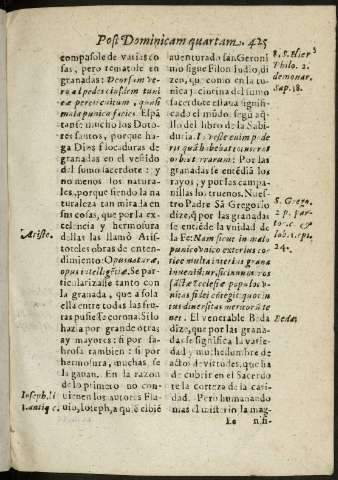 Post Dominicam quartam. 425
compasole de varias co
sas, pero rematole en
granadas: Deorsum ve-
ro ad pedes eiusdem tuni
cæ per circuitum, quasi
mala punica facies. Espã
tanse mucho los Doto-
res santos, porque ha-
ga Dios tocaduras de
granadas en el vestido
del sumo sacerdote: y
no menos los natura-
les, porque siendo la na
turaleza tan mirada en
sus cosas, que por la ex-
celencia y hermosura
dellas las llamò Aris-
toteles obras de enten-
dimiento: Opus naturæ,
opus intelligẽtiæ, Se par-
ticularizasse tanto con
la granada, que a sola
ella entre todas las fru-
tas pusiesse corona. Si lo
hazia por grande otras
ay mayores: si por sa-
brosa tambien: si por
hermosura, muchas se
la ganan. En la razon
de lo primero no con-
uienen los autores Fla-
uio, Ioseph, a quiẽ escibiẽ
Ariste.
Ioseph. li.
1. antiq. c.
auenturado san Geroni
mo sigue Filon Iudio, di
zen, que como en la tu
nica jacintina del sumo
sacerdote estaua signifi-
cado el mũdo, segũ aq̃-
llo del libro de la Sabi-
duria. In veste enim pode-
ris quã habebat totus erat
orbis terrarum: Por las
granadas se entẽdiã los
rayos, y por las campa-
nillas los truenos. Nues-
tro Padre Sã Gregorio
dize, q̃ por las granadas
se entiende la vnidad de
la Fè: Nam sicut in malo
punico vno exterius cor-
tice multa interius grana
inueniuntur, sic innumeros
sãctæ Ecclesiæ populos v-
nitas fidei cõtegit quos in
tus diuersitas meritorũ te
net. El venerable Beda
dize, que por las grana-
das se significa la varie-
dad y muchedumbre de
actos de virtudes, que ha
de cubrir en el Sacerdo
te la corteza de la cari-
dad. Pero humanando
mas el misterio la mag-
Ee nifi-
8. S. Hier
Philo. 2.
demonar.
Sap. 18.
S. Grego.
2 p. pas-
24.
Beda.